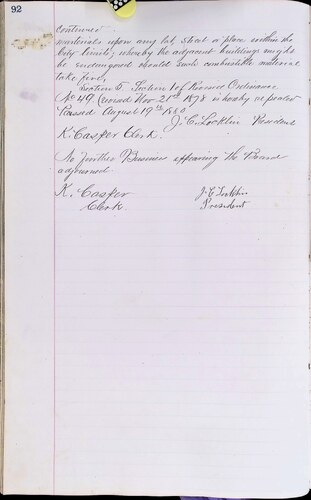 92
Continued
materials upon any lot, street or place within the
City limits, whereby the adjacent buildings might
be endangered should such combustable material
take fire,
Section 5. Section 1 of Revised Ordinance
No 49. Nov. 21st 1878 is hereby repealed
Passed August 19th 1880
J. C. Locklin President
K. Casper Clerk.
No further Business appearing the Board
adjourned
K. Casper J. C. Locklin
Clerk President